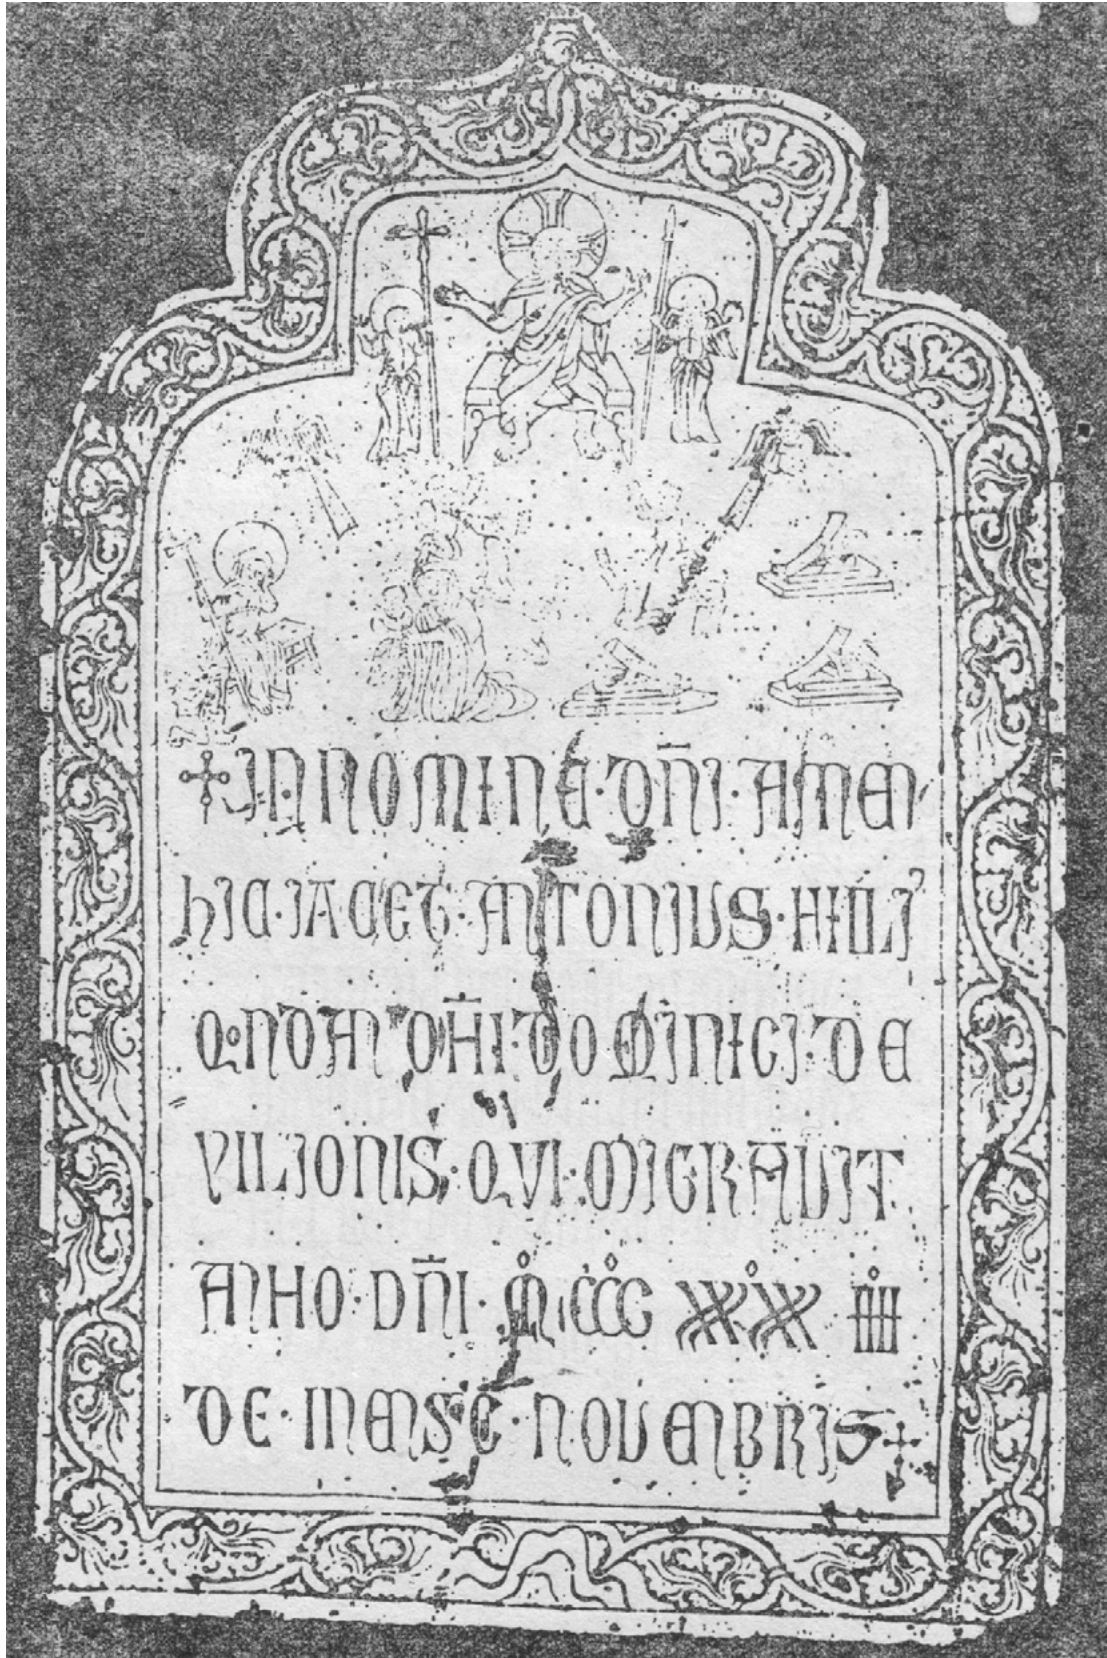 ✢ IN NOMINE · DN̄I · AMEN
HIC · IACET · ANTONIUS · FILI
QONDAM DN̄I · DOMINICI · DE
VILIONIS · QVI · MIGRAVIT
ANNO · DN̄I · M CCC XXXX IIII
DE · MENSE · NOVEMBRIS ✢